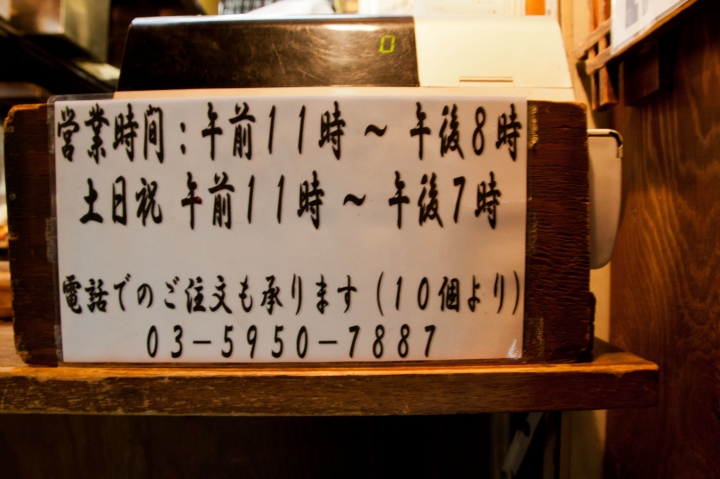 0
営業時間:午前11時～午後8時
土日祝 午前11時～午後7時
電話でのご注文も承ります(10個より)
03-5950-7887